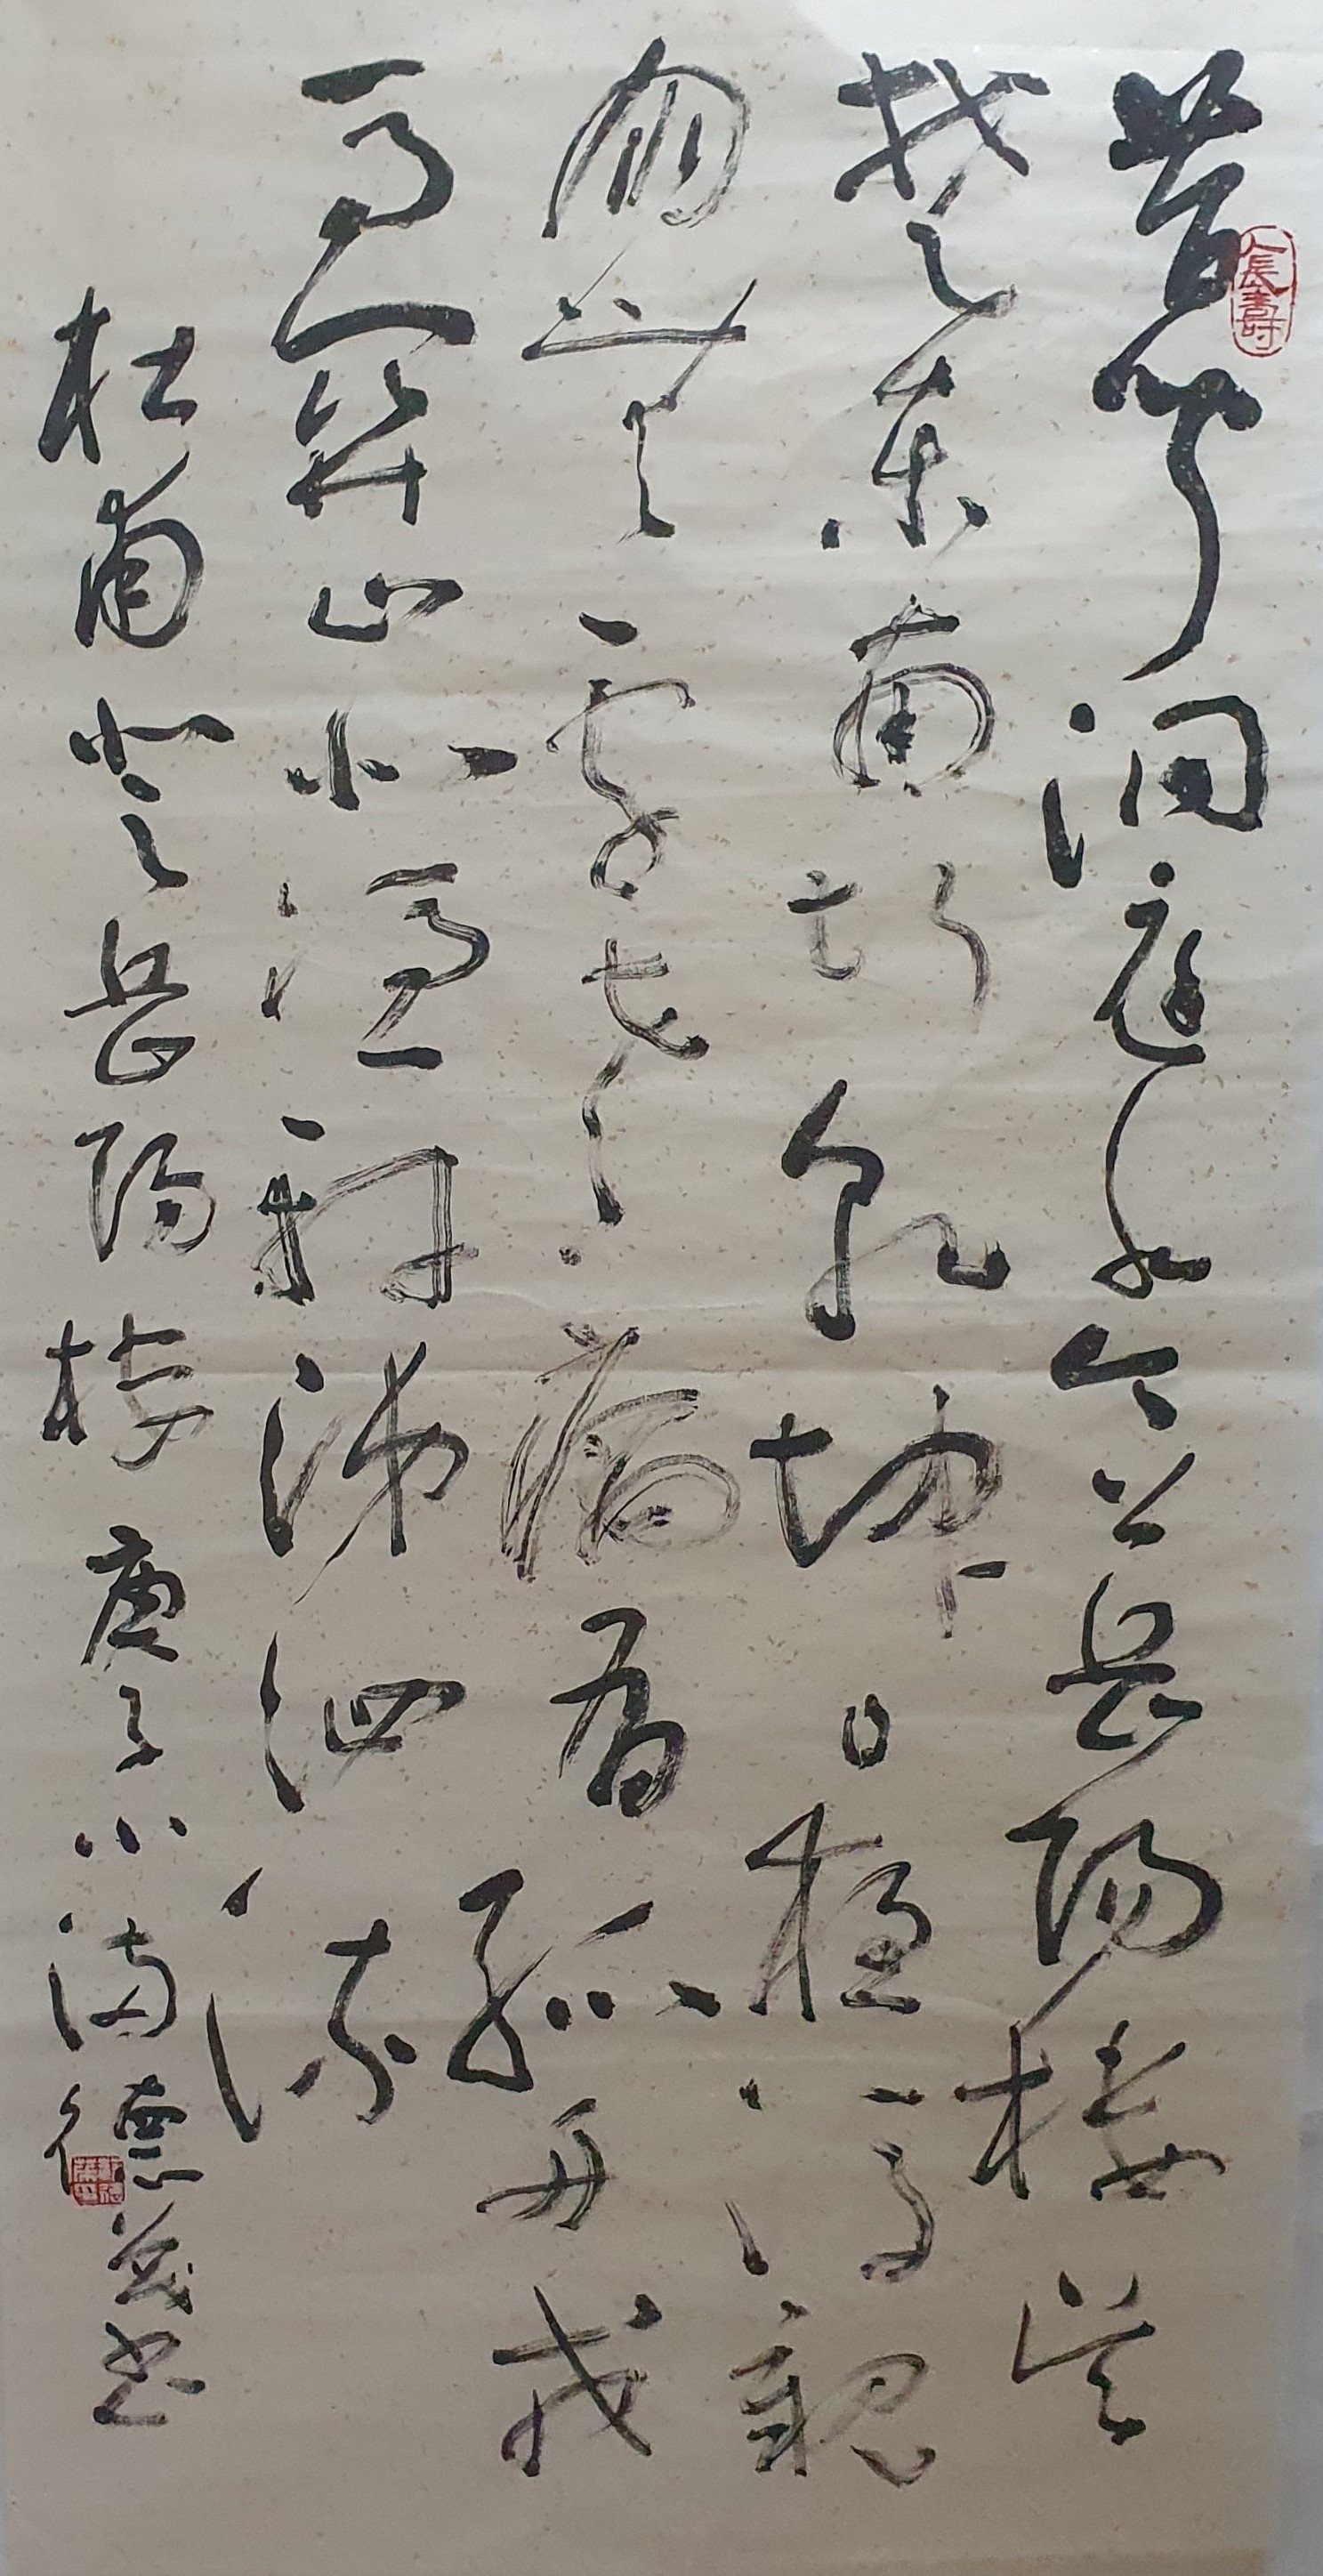 人長壽
昔聞洞庭水今上岳陽樓吳
楚東南坼乾坤日夜浮親
朋無一字老病有孤舟戎
馬關山北憑軒涕泗流
杜甫登岳陽樓 庚子小滿德茂書